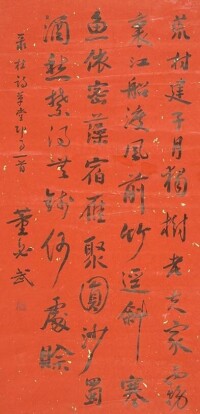 荒村建子月獨樹老夫家霧
裏江船渡風前竹逕斜寒
魚依密藻宿雁聚圓沙蜀
酒愁禁得無錢何處賒
录杜詩草堂即事一首
董必武